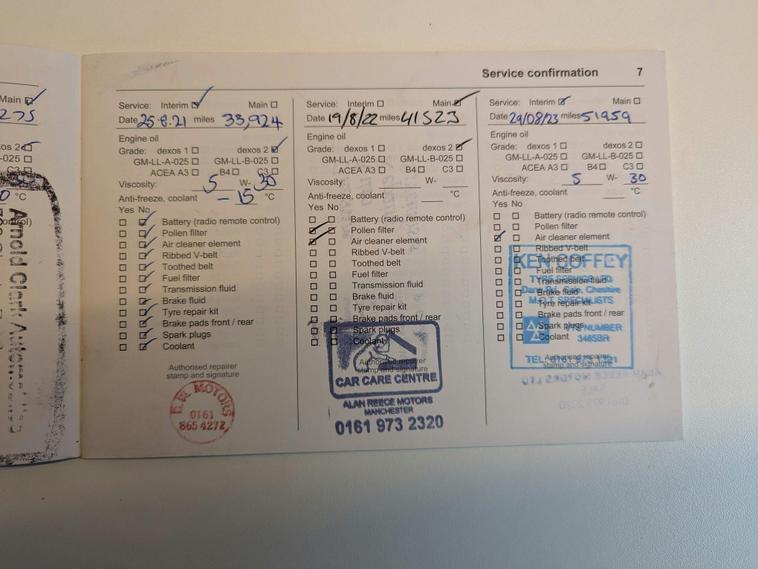 Service confirmation 7
Main
275
Arnold Clark
Service: Interim Main
Date 25.8.21 miles 33,924
Engine oil
Grade: dexos 1 dexos 2
GM-LL-A-025 GM-LL-B-025
ACEA A3 B4 C3
Viscosity: 5 W- 30
Anti-freeze, coolant - 15 °C
Yes No
Battery (radio remote control)
Pollen filter
Air cleaner element
Ribbed V-belt
Toothed belt
Fuel filter
Transmission fluid
Brake fluid
Tyre repair kit
Brake pads front / rear
Spark plugs
Coolant
Authorised repairer
stamp and signature
MOTORS
0161
865 4272
Service: Interim Main
Date 19/8/22 miles 41523
Engine oil
Grade: dexos 1 dexos 2
GM-LL-A-025 GM-LL-B-025
ACEA A3 B4 C3
Viscosity: W-
Anti-freeze, coolant °C
Yes No
Battery (radio remote control)
Pollen filter
Air cleaner element
Ribbed V-belt
Toothed belt
Fuel filter
Transmission fluid
Brake fluid
Tyre repair kit
Brake pads front / rear
Spark plugs
Coolant
Authorised repairer
stamp and signature
CAR CARE CENTRE
ALAN REECE MOTORS
MANCHESTER
0161 973 2320
Service: Interim Main
Date 29/08/23 miles 51959
Engine oil
Grade: dexos 1 dexos 2
GM-LL-A-025 GM-LL-B-025
ACEA A3 B4 C3
Viscosity: 5 W- 30
Anti-freeze, coolant °C
Yes No
Battery (radio remote control)
Pollen filter
Air cleaner element
Ribbed V-belt
Toothed belt
KEN COFFEY
Fuel filter
Transmission fluid
Brake fluid
M.O.T SPECIALISTS
Tyre repair kit
Brake pads front / rear
Spark plugs
VTS NUMBER
3465BR
Coolant
Authorised repairer
stamp and signature